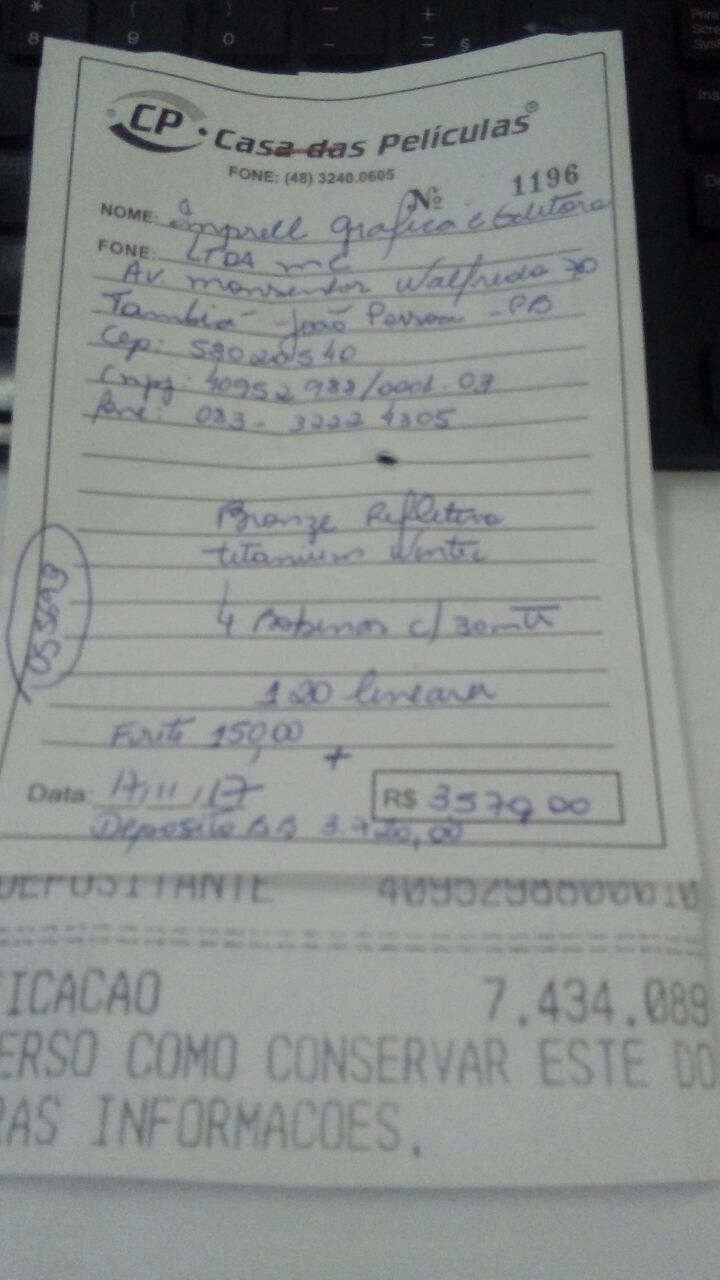 CP Casa das Películas®
FONE: (48) 3240.0605
Nº 1196
NOME: Imprell Grafica e Editora
FONE: LTDA me
Av. monsenhor Walfredo 70
Tambiá - João Pessoa - PB
Cep: 58020540
Cnpj: 40952983/0001.03
fone: 083 - 3222 4305
Bronze Refletivo
titanium Wintec
4 Bobinas c/ 30m
120 lineara
Frete 150,00
+
Data: 17/11/17
R$ 3570,00
Deposito BB 3.720,00
055693
DEPOSITANTE
ICACAO 7.434.089
ERSO COMO CONSERVAR ESTE DO
RAS INFORMACOES.